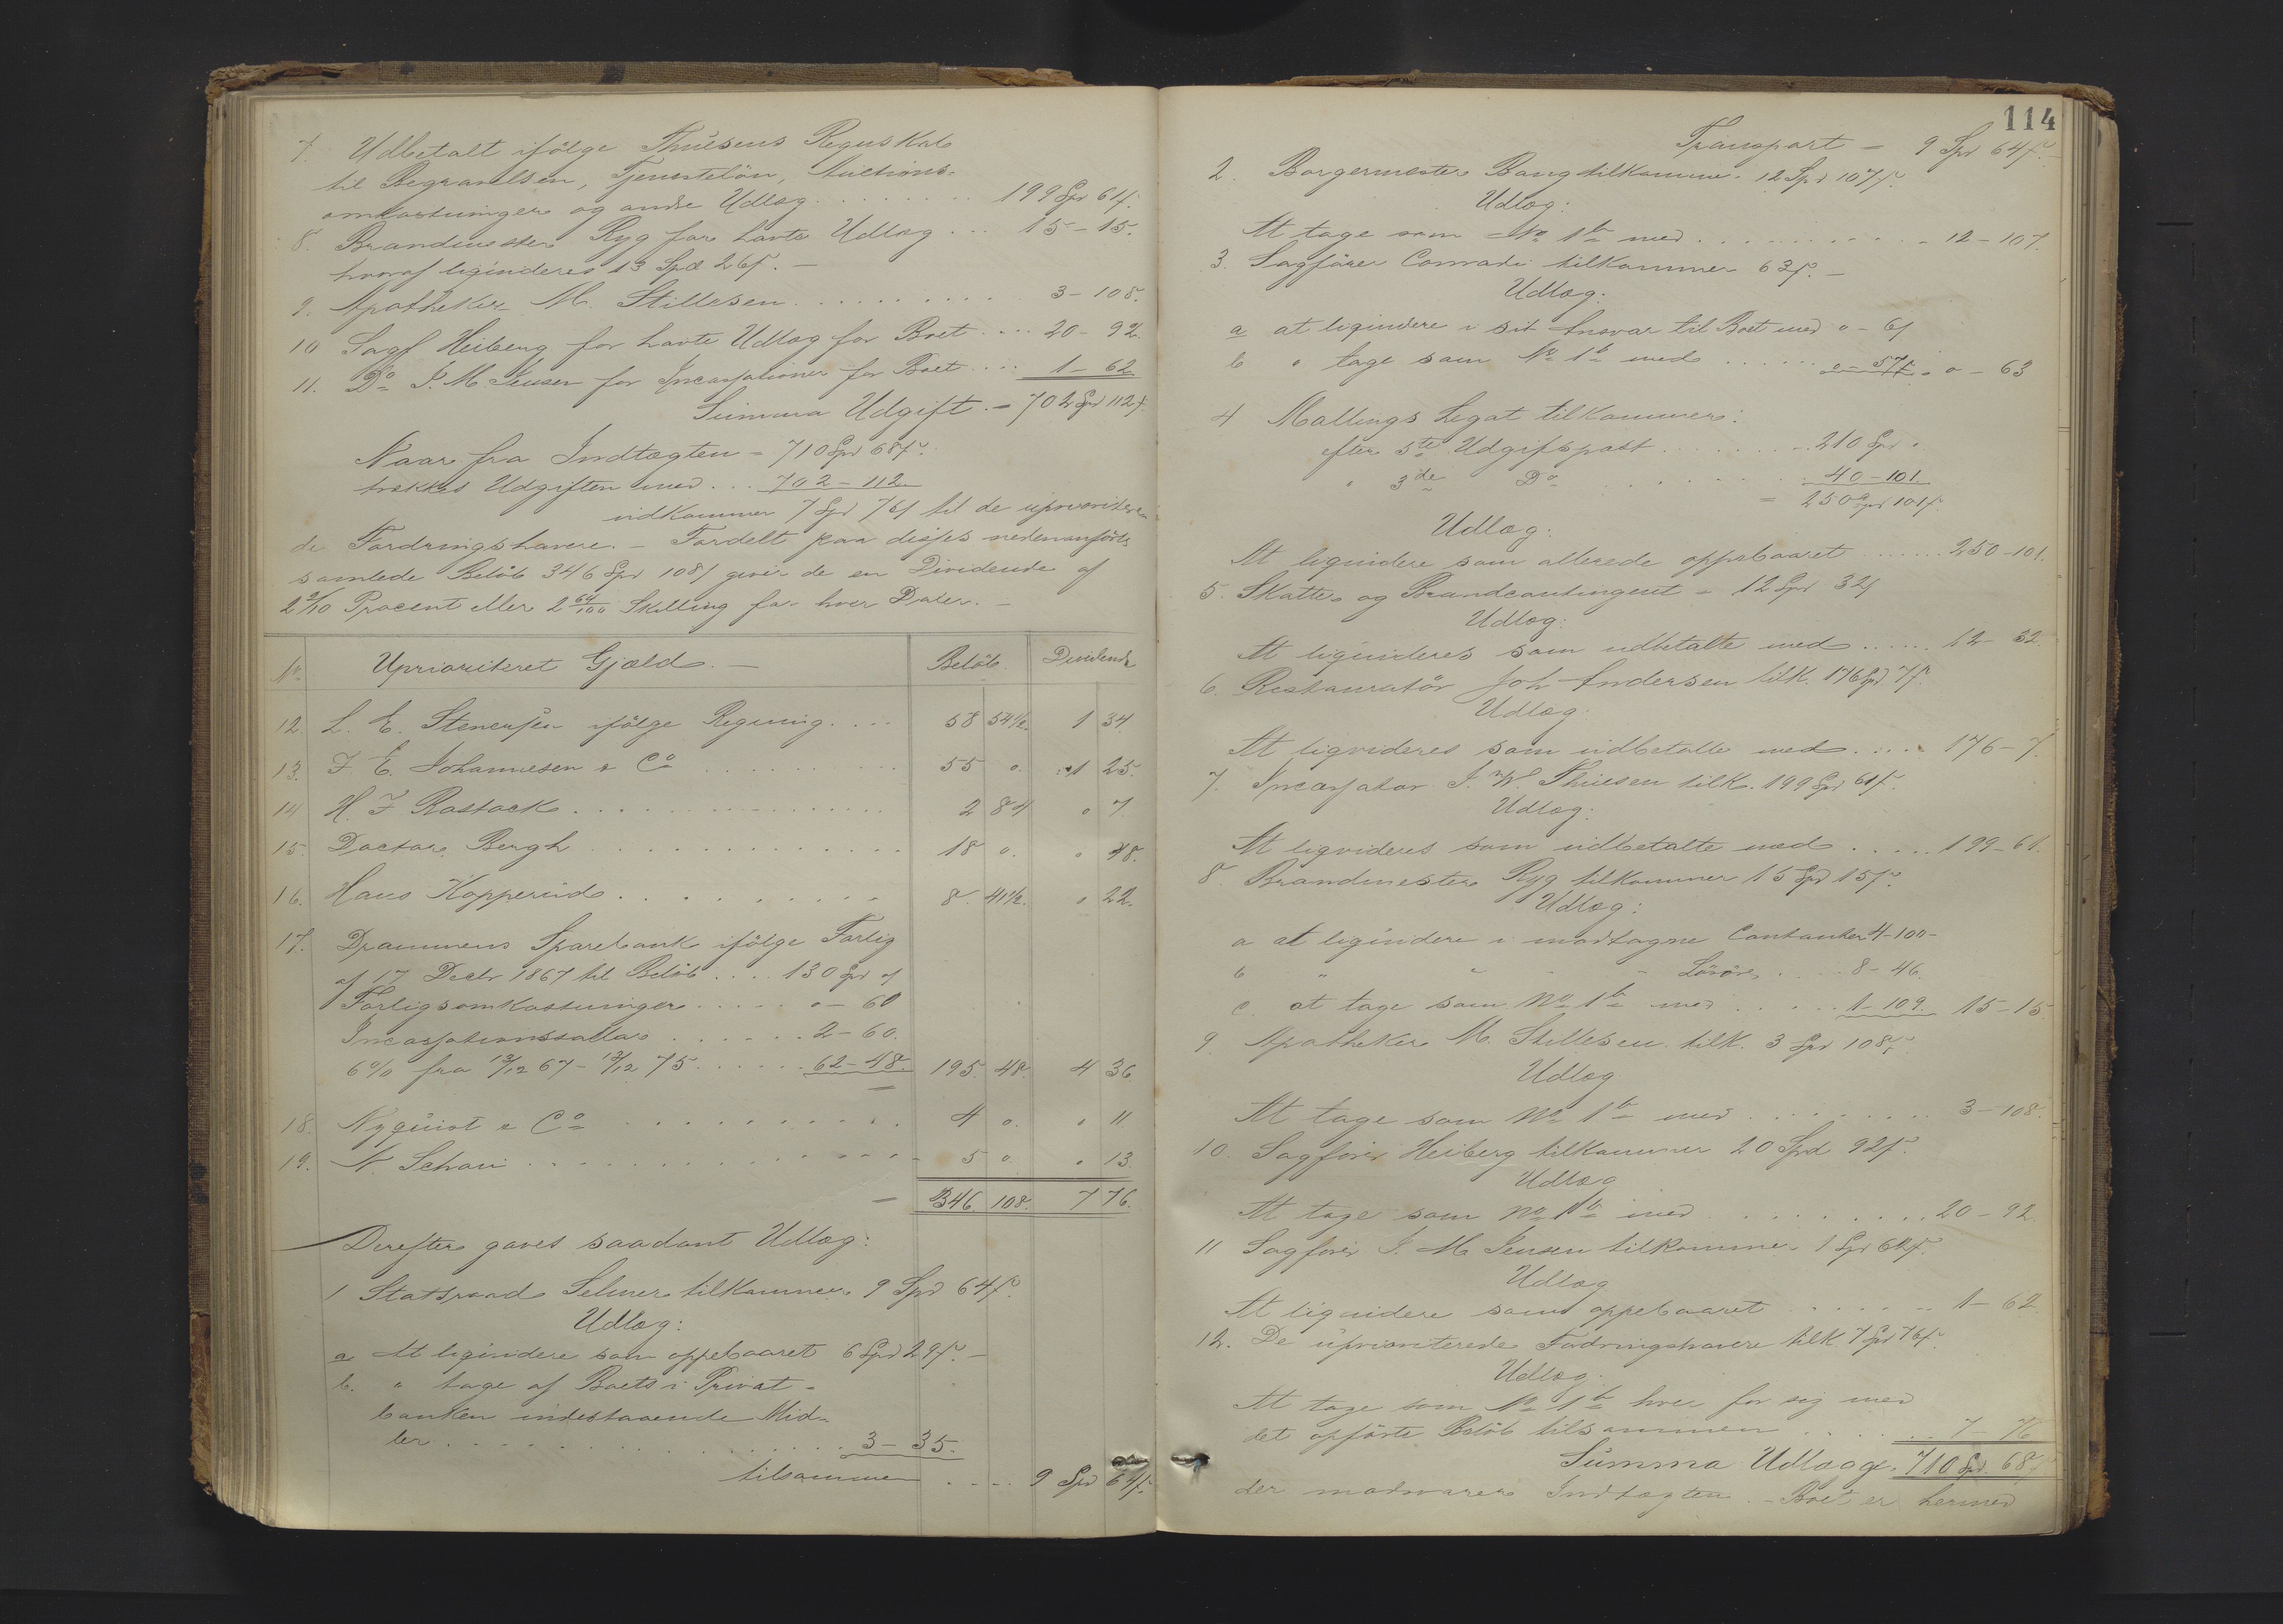 7. Udbetalt ifölge Thuesens Regnskab
til Begravelsen, Tjenestelön, Auctions-
omkostninger og andre Udlæg . . . . . . . 199 Spd 61 s.
8. Brandmester Ryg for havte Udlæg . . . 15 – 15.
hvoraf liqvideres 13 Spd 26 s. –
9. Apotheker M. Stillesen . . . . . . . . . 3 – 108.
10 Sagf Heiberg for havte Udlæg for Boet . . . . 20 – 92.
11. Do J. M Jensen for Incassationer for Boet . . . . 1 – 62
Summa Udgift . = 702 Spd 112 s.
Naar fra Indtægten = 710 Spd 68 s.
trækkes Udgiften med . . . 702 – 112
udkommer 7 Spd 76 s til de uprioritere-
de Fordringshavere. – Fordelt paa disses nedenanförte
samlede Belöb 346 Spd 108 s giver de en Dividende af
2 2/10 Procent eller 2 64/100 Skilling for hver Daler. –
No Uprioriteret Gjæld. – Belöb. Dividende
12. L. E. Stenersen ifölge Regning . . . . 58 54 1/2. 1 34.
13. F. E. Johannesen & Co . . . . . . . 55 o. 1 25.
14 H. F Rostock . . . . . . . . . . . 2 84 o 7.
15. Doctor Bergh . . . . . . . . . . . . 18 o. o 48.
16. Hans Kopperud . . . . . . . . . . 8. 41 1/2. o 22.
17. Drammens Sparebank ifölge Forlig
af 17 Decbr 1867 til Belöb . . . . 130 Spd o s
Forligsomkostninger . . . . . o – 60
Incassationssallær . . . . . . 2 – 60.
6 % fra 13/12 67 – 13/12 75 . . . . . . 62 – 48. 195. 48. 4 36
18. Nyquist & Co . . . . . . . . . . 4 o. o 11
19. N. Schou . . . . . . . . . . . . . . 5 o. o 13.
= 346. 108. 7 76.
Derefter gaves saadant Udlæg:
1 Statsraad Selmer tilkommer 9 Spd 64 s.
Udlæg:
a At liqvidere som oppebaaret 6 Spd 29 s. –
b. " tage af Boets i Privat-
banken indestaaende Mid-
ler . . . . . . . . . . . . . . . . . 3 – 35.
tilsammen . . . . 9 Spd 64 s.
114
Transport = 9 Spd 64 s. –
2. Borgermester Bang tilkommer 12 Spd 107 s.
Udlæg:
At tage som No 1 b med . . . . . . . . . . . 12 – 107.
3. Sagförer Conradi tilkommer 63 s. –
Udlæg:
a at liqvidere i sit Ansvar til Boet med o – 6 s
b " tage som No 1 b med . . . . . . o – 57 s. = o – 63
4 Mallings Legat tilkommer:
efter 5te Udgiftspost . . . . . . . . 210 Spd "
" 3de Do . . . . . . . . . . 40 – 101.
= 250 Spd 101 s.
Udlæg:
At liqvidere som allerede oppebaaret . . . . . . . 250 – 101.
5. Skatter og Brandcontingent = 12 Spd 32 s
Udlæg:
At liqvideres som udbetalte med . . . . . . 12 – 32.
6. Restauratör Joh Andersen tilk. 176 Spd. 7 s.
Udlæg:
At liqvideres som udbetalte med . . . . . 176 – 7.
7. Incassator J. W. Thuesen tilk. 199 Spd 61 s.
Udlæg:
At liqvideres som udbetalte med . . . . . 199 – 61.
8. Brandmester Ryg tilkommer 15 Spd 15 s.
Udlæg:
a at liqvidere i modtagne Contanter 4 – 100 –
b " " " – Lösöre . . . . 8 – 46.
c. at tage som No 1 b med . . . . . 1 – 109. 15 – 15
9. Apotheker M. Stillesen tilk. 3 Spd 108 s.
Udlæg
At tage som No 1 b med . . . . . . . . . 3 – 108.
10. Sagförer Heiberg tilkommer 20 Spd 92 s.
Udlæg
At tage som No 1 b med . . . . . . . . . . 20 – 92.
11 Sagförer J. M Jensen tilkommer 1 Spd 62 s.
Udlæg
At liqvidere som oppebaaret . . . . . . . 1 – 62
12. De uprioriterede Fodringshavere tilk. 7 Spd 76 s.
Udlæg:
At tage som No 1 b hver for sig med
det opförte Belöb tilsammen . . . . . . 7 – 76
Summa Udlæg = 710 Spd. 68 s
der modsvarer Indtægten. – Boet er hermed